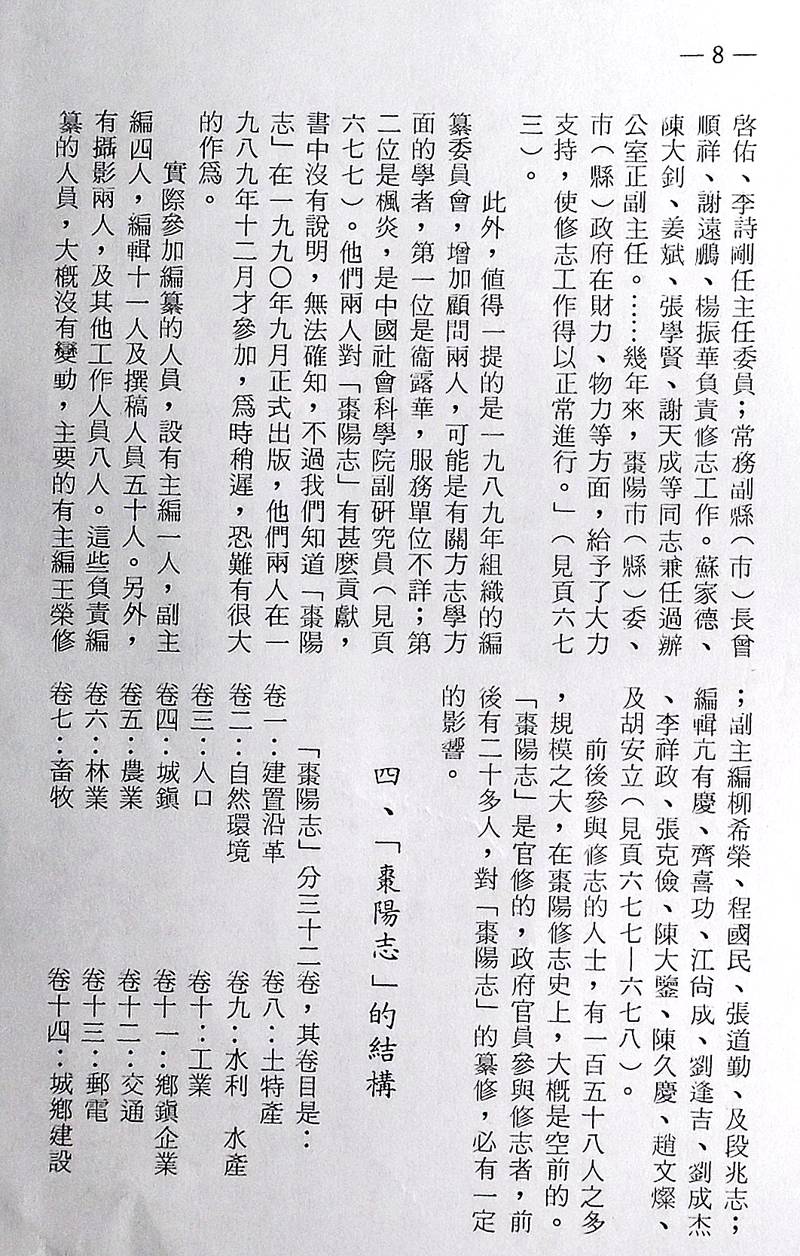 — 8 —
啓佑、李詩剛任主任委員；常務副縣（市）長曾
順祥、謝遠鵬、楊振華負責修志工作。蘇家德、
陳大釗、姜斌、張學賢、謝天成等同志兼任過辦
公室正副主任。……幾年來，棗陽市（縣）委、
市（縣）政府在財力、物力等方面，給予了大力
支持，使修志工作得以正常進行。」（見頁六七
三）。
此外，值得一提的是一九八九年組織的編
纂委員會，增加顧問兩人，可能是有關方志學方
面的學者，第一位是衞露華，服務單位不詳；第
二位是楓炎，是中國社會科學院副研究員（見頁
六七七）。他們兩人對「棗陽志」有甚麽貢獻，
書中沒有說明，無法確知，不過我們知道「棗陽
志」在一九九〇年九月正式出版，他們兩人在一
九八九年十二月才參加，爲時稍遲，恐難有很大
的作爲。
實際參加編纂的人員，設有主編一人，副主
編四人，編輯十一人及撰稿人員五十人。另外，
有攝影兩人，及其他工作人員八人。這些負責編
纂的人員，大概沒有變動，主要的有主編王榮修
；副主編柳希榮、程國民、張道勤、及段兆志；
編輯亢有慶、齊喜功、江尙成、劉逢吉、劉成杰
、李祥政、張克儉、陳大鑒、陳久慶、趙文燦、
及胡安立（見頁六七七—六七八）。
前後參與修志的人士，有一百五十八人之多
，規模之大，在棗陽修志史上，大概是空前的。
「棗陽志」是官修的，政府官員參與修志者，前
後有二十多人，對「棗陽志」的纂修，必有一定
的影響。
四、「棗陽志」的結構
「棗陽志」分三十二卷，其卷目是：
卷一：建置沿革　卷八：土特產
卷二：自然環境　卷九：水利　水產
卷三：人口　卷十：工業
卷四：城鎭　卷十一：鄉鎭企業
卷五：農業　卷十二：交通
卷六：林業　卷十三：郵電
卷七：畜牧　卷十四：城鄉建設